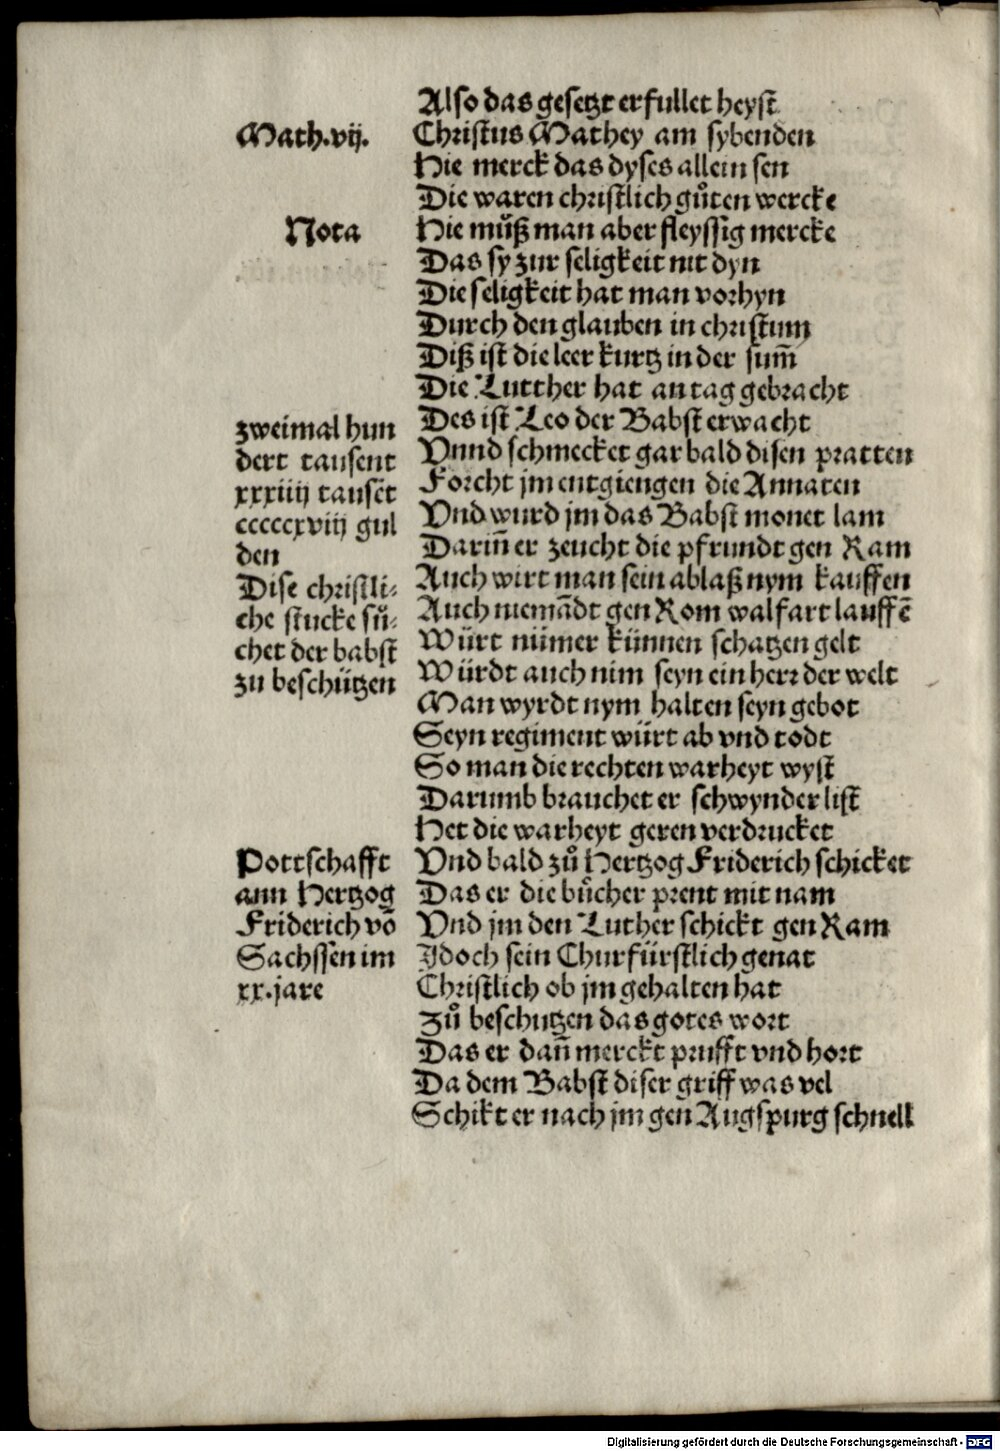 Also das gesetzt erfullet heyst
Math.vij.
Christus Mathey am sybenden
Hie merck das dyses allein sen
Die waren christlich gůten wercke
Nota
Hie můß man aber fleyssig mercke
Das sy zur seligkeit nit dyn
Die seligkeit hat man vorhyn
Durch den glauben in christum
Diß ist die leer kurtz in der sum̄
Die Lutther hat an tag gebracht
Des ist Leo der Babst erwacht
Vnnd schmecket gar bald disen pratten
Forcht jm entgiengen die Annaten
Vnd wurd jm das Babst monet lam
Darin̄ er zeucht die pfrundt gen Ram
Auch wirt man sein ablaß nym kauffen
Auch niemādt gen Rom walfart lauffē
Würt nümer künnen schatzen gelt
Würdt auch nim seyn ein herr der welt
Man wyrdt nym halten seyn gebot
Seyn regiment würt ab vnd todt
So man die rechten warheyt wyst
Darumb brauchet er schwynder list
Het die warheyt geren verdrucket
zweimal hun
dert tausent
xxxiiij tausēt
cccccxviij gul
den
Dise christli-
che stucke sů-
chet der babst
zu beschützen
Vnd bald zů Hertzog Friderich schicket
Das er die bücher prent mit nam
Vnd jm den Luther schickt gen Ram
Jdoch sein Churfürstlich genat
Christlich ob jm gehalten hat
Zů beschutzen das gotes wort
Das er dan̄ merckt prufft vnd hort
Da dem Babst diser griff was vel
Schikt er nach jm gen Augspurg schnell
Pottschafft
ann Hertzog
Friderich vō
Sachssen im
xx.jare
Digitalisierung gefördert durch die Deutsche Forschungsgemeinschaft - DFG